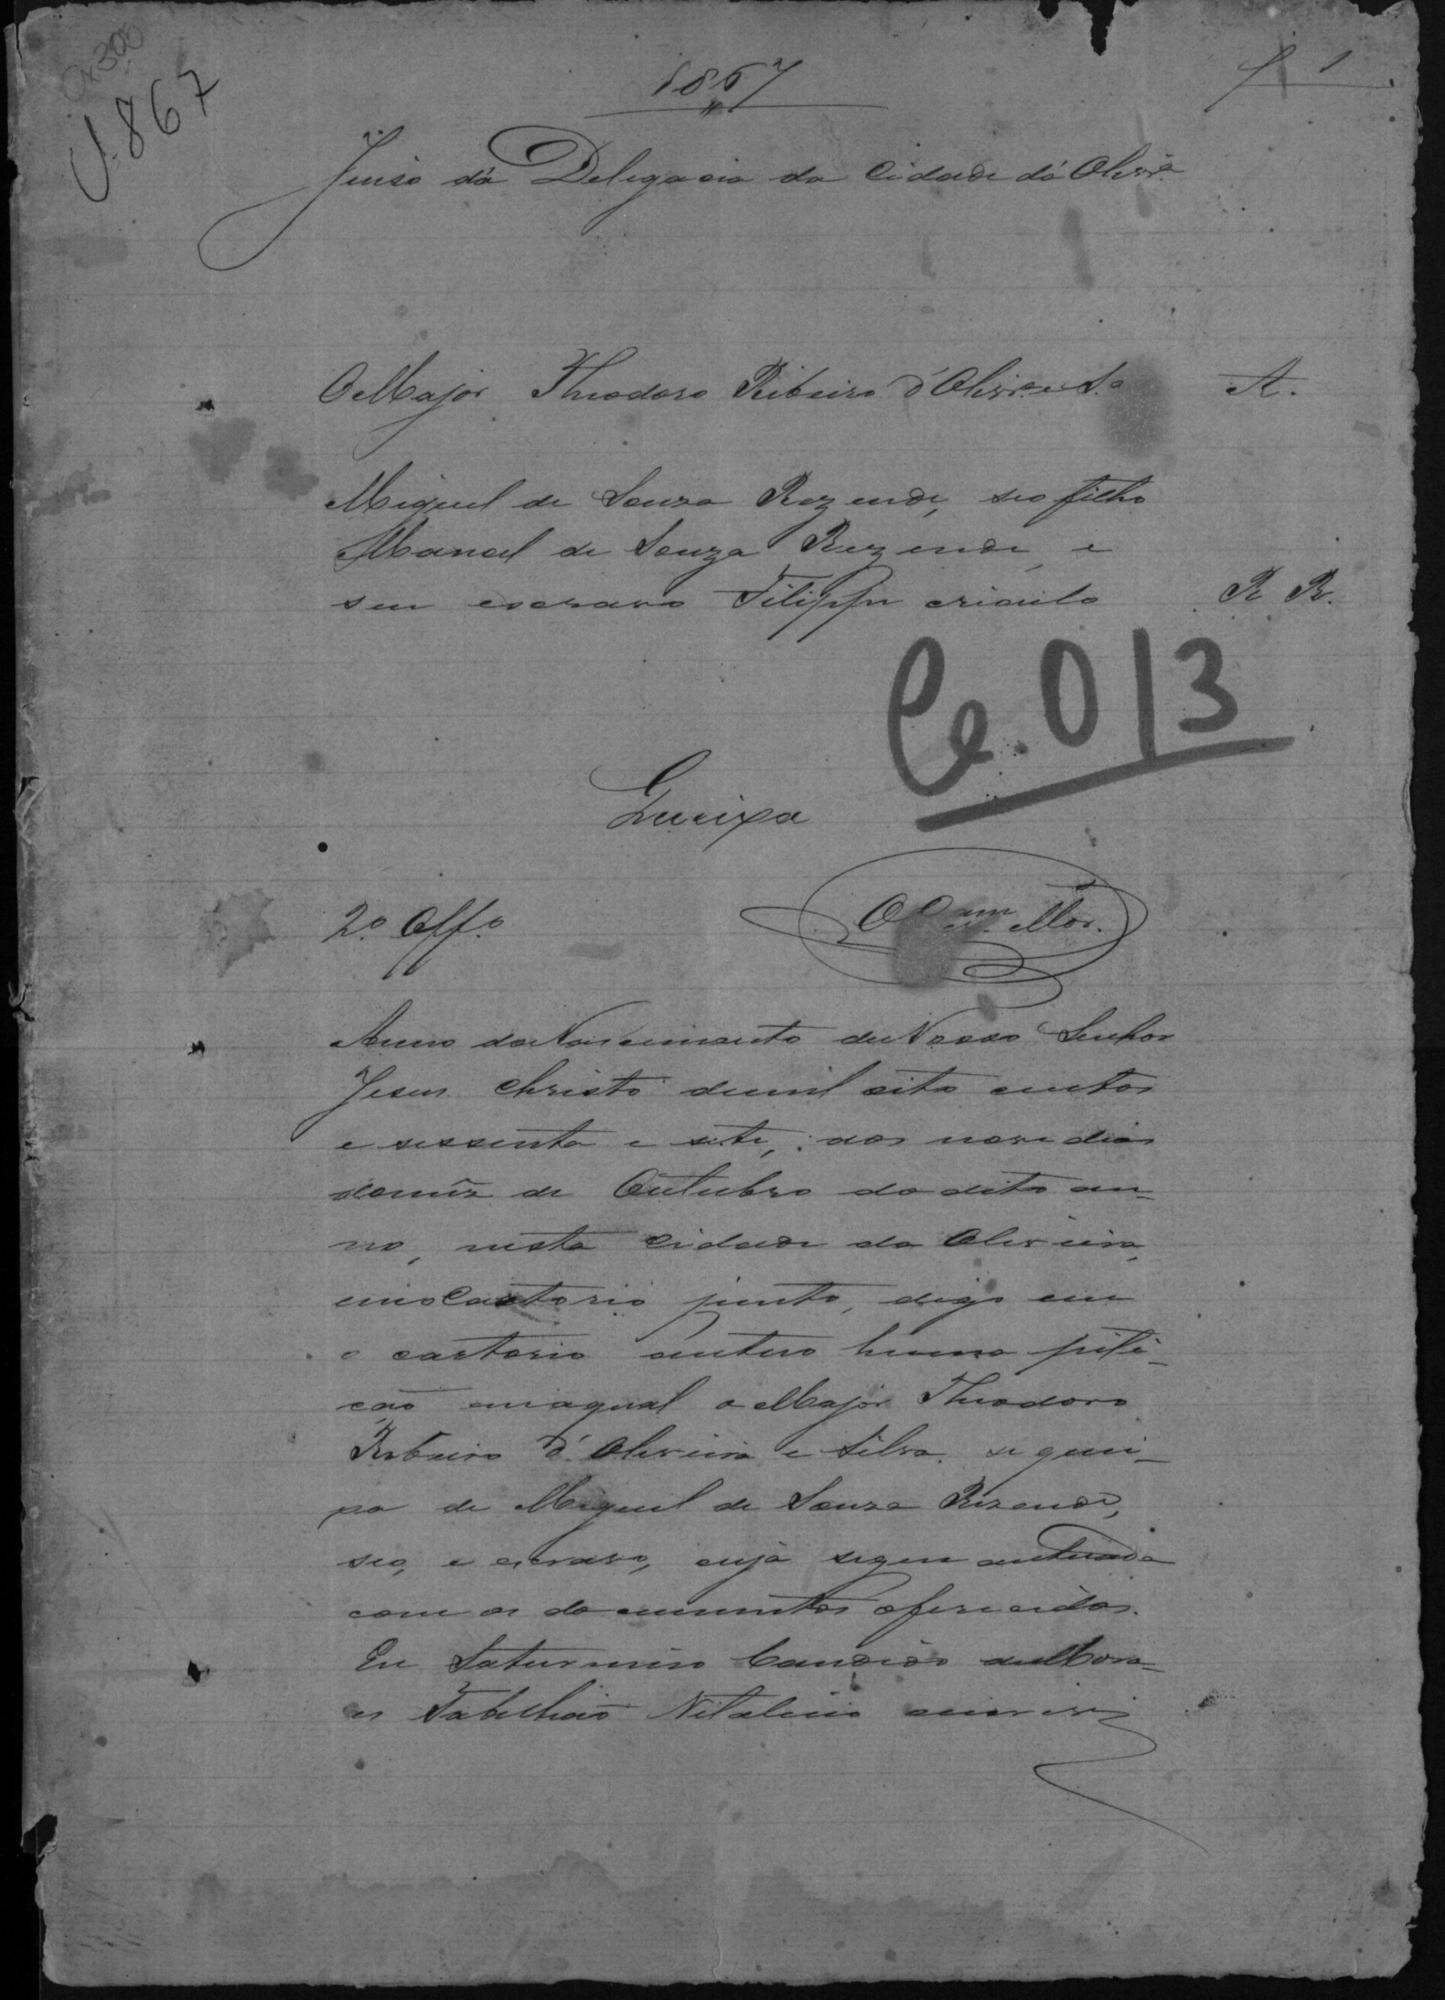 1867
f 1
1.867
Juiso da Delegacia da Cidade da Olivrª
O Major Theodoro Ribeiro d'Olivrª e Sª
A.
Miguel de Souza Rezende, seo filho
Manoel de Souza Rezende, e
seu escravo Filippe crioulo
R R.
Ce. 013
Queixa
2º Offº
O Escram Mor.
Anno do Nascimento de Nosso Senhor
Jesus Christo de mil oito centos
e sessenta e sete, aos nove dias
do mez de Outubro do dito an-
no, nesta Cidade da Oliveira,
em o Cartorio junto, digo em
o cartorio autuo huma peti-
ção em a qual o Major Theodoro
Ribeiro d'Oliveira e Silva se quei-
xa de Miguel de Souza Rezende,
seo, e escravo, cuja segue autuada
com os documentos oferecidos.
Eu Saturnino Candido de Mora-
es Tabellião Vitalicio escrevi